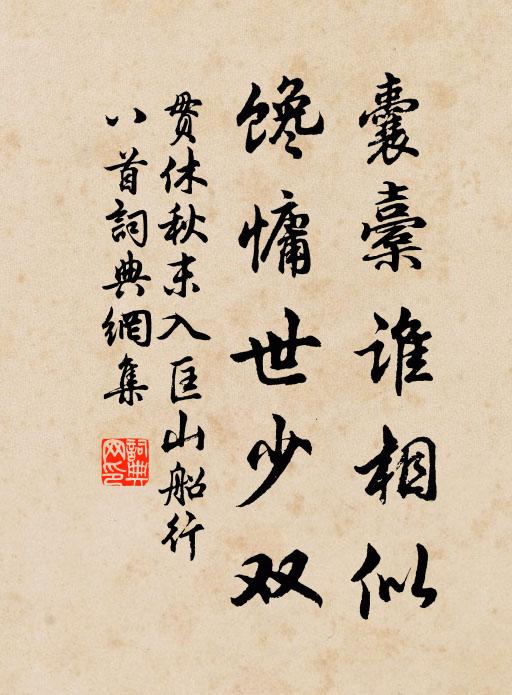 囊橐谁相似
馋慵世少双
贯休秋末入匡山船行
八首詞典網集
詞典网印